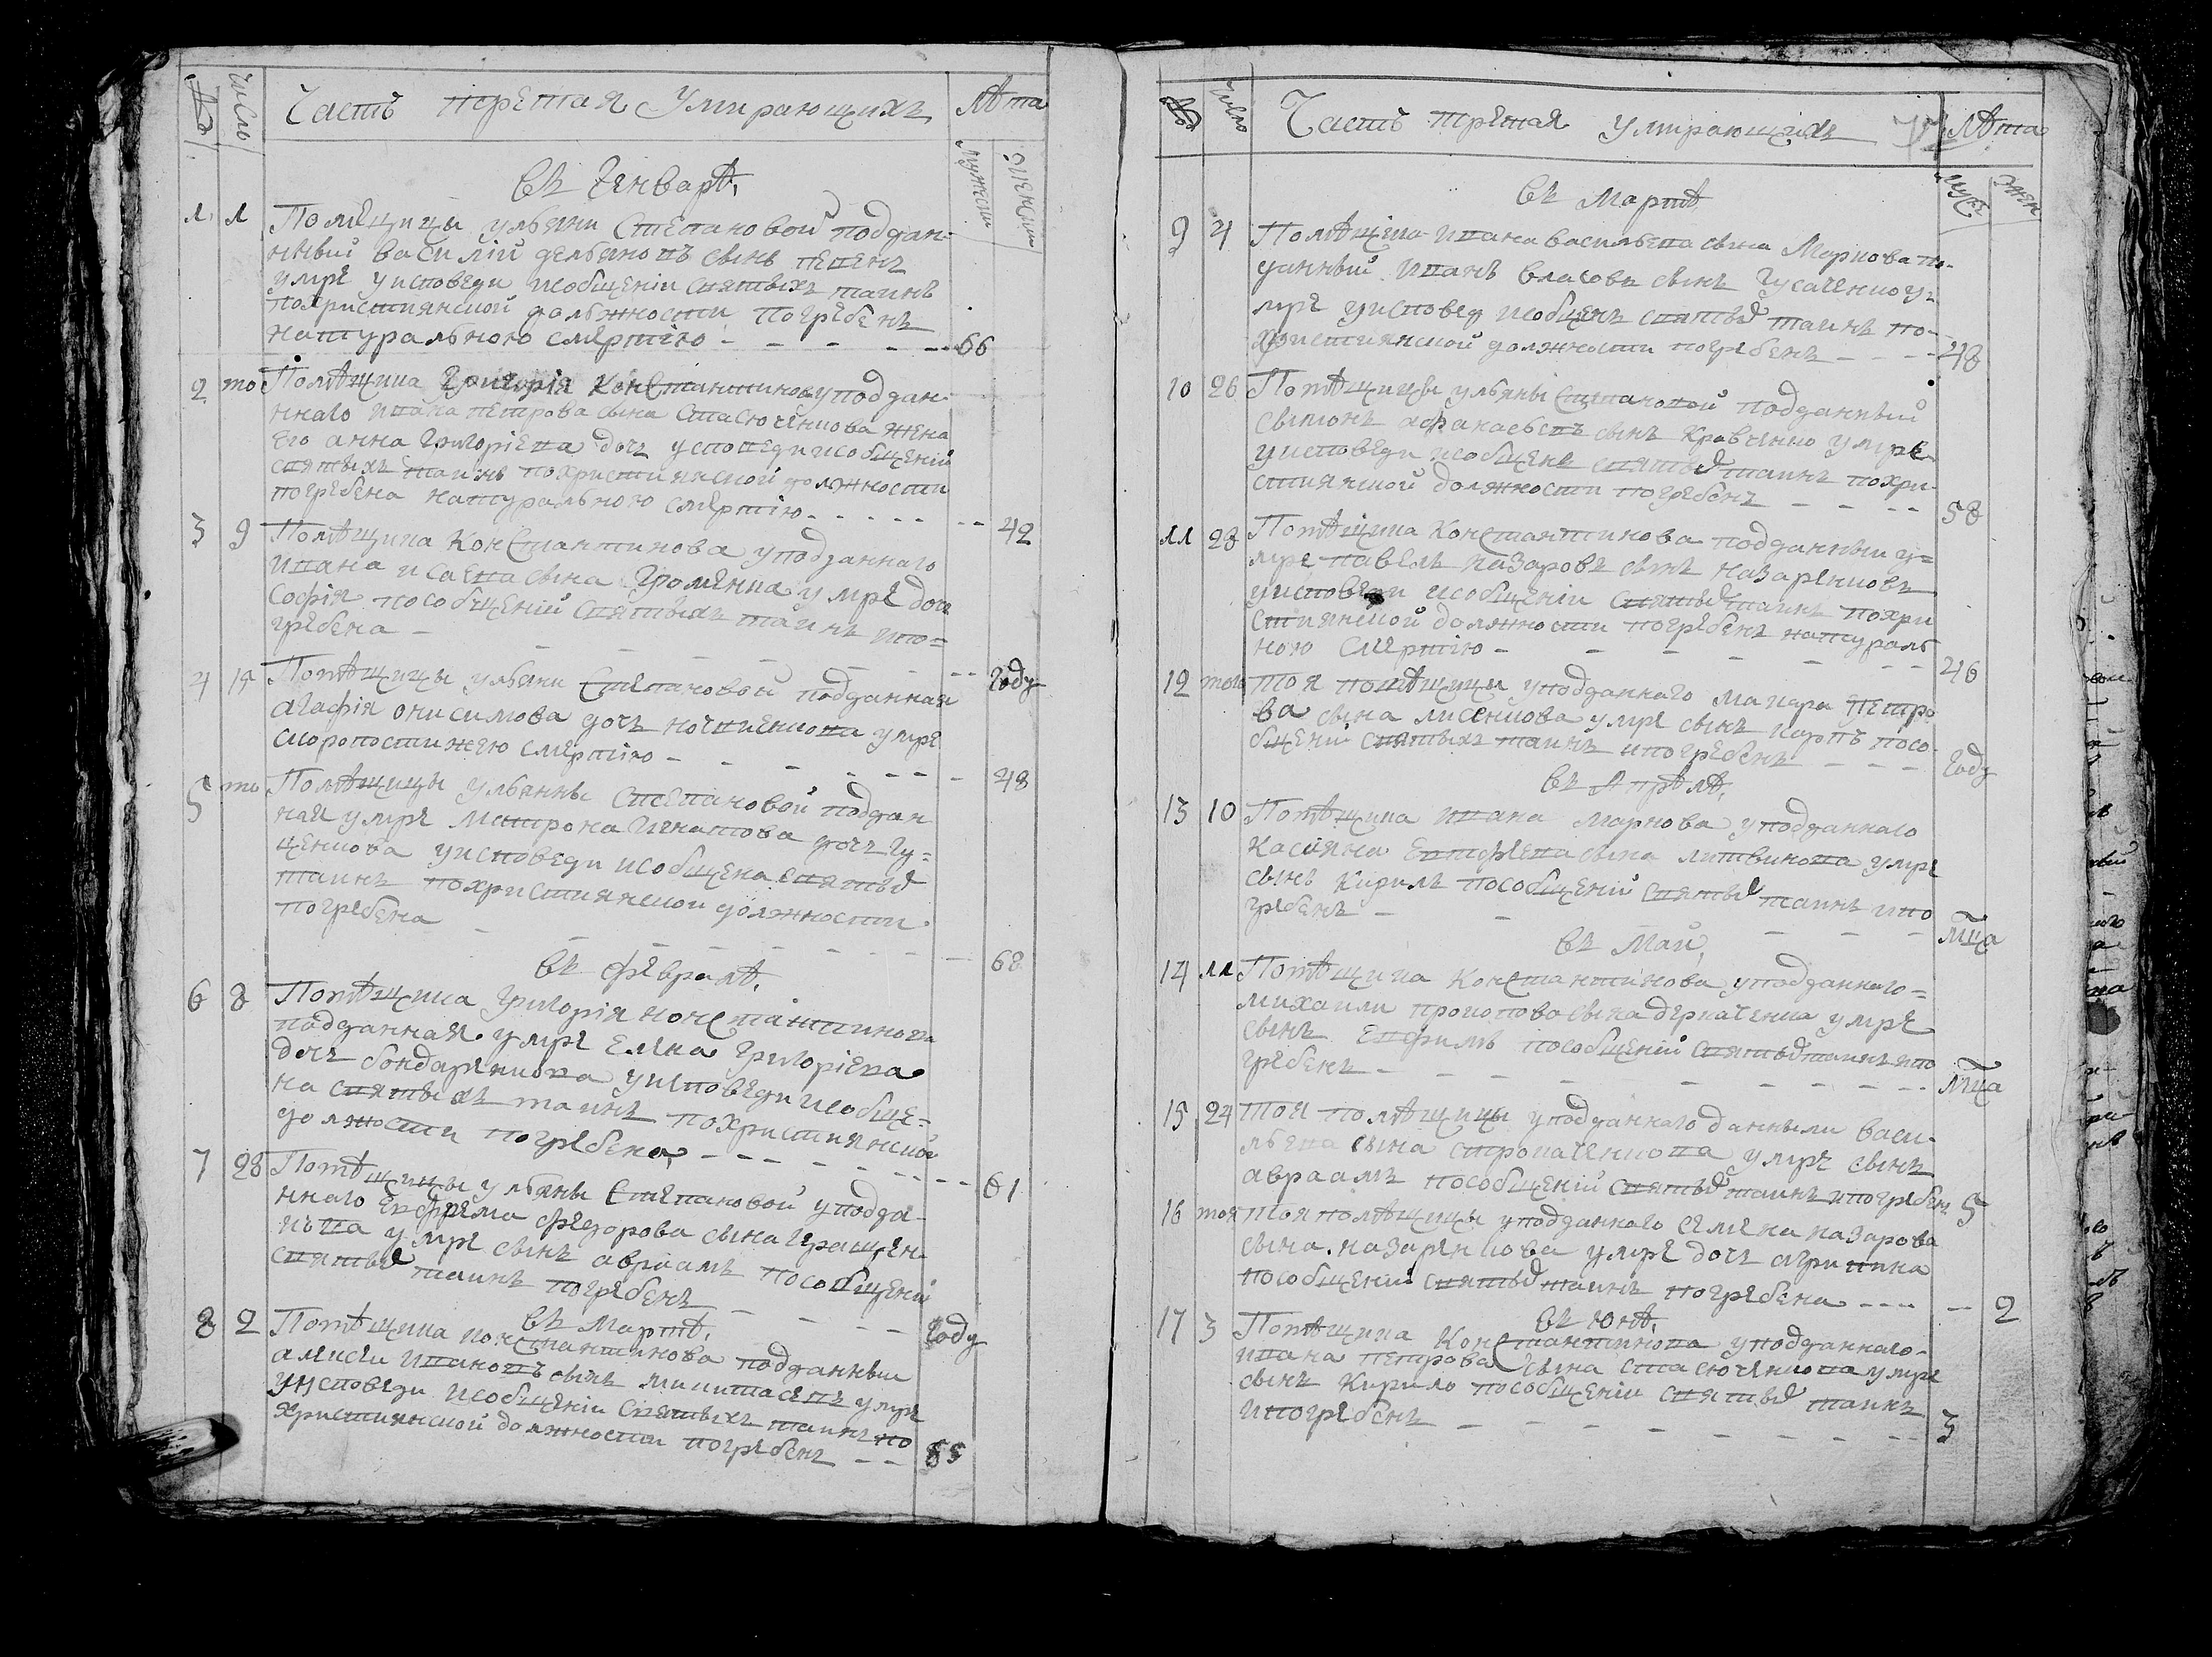 № Число Часть третая Умирающихъ Лѣта
мужески женски
Въ Генварѣ,
1 1 Помѣщицы ульяни Степановой поддан-
нный василій демьяновъ сынъ
умре уисповеди исобщеніи святыхъ таинъ
похристиянской должности погребенъ
натуральною смертію - - - - - 66
2 то Помѣщика Григорія Константинова уподдан-
ннаго ивана петрова сына стасюченкова жена
его анна григоріева дочъ усповеди исобщеній
святыхъ таинъ похристиянской должности
погребена натуральною смертію - - - - - 42
3 9 Помѣщика Константинова уподданнаго
ивана исаева сына Громенка умре дочъ
Софія пособщеній святыхъ таинъ ипо=
гребена - - - - - - Году
4 15 Помѣщицы ульяни Степановой подданная
агафія онисимова дочъ умре
скоропостижею смертію - - - - - - 48
5 то Помѣщицы ульянны степановой поддан
ная умре Матрона Игнатова дочъ Гу=
ценкова уисповеди исобщена святыхъ
таинъ похристиянской должности
погребена - - - - - - 68
Въ февралѣ,
6 8 Помѣщика григорія константинова
подданная умре Елена григоріева
дочъ бондаренкова уисповеди исобще=
на святыхъ таинъ похристиянской
должности погребена, - - - - - - 61
7 28 Помѣщицы ульяны Степановой уподда-
ннаго Ефрема федорова сына геращен-
кова умре сынъ авраамъ пособщеній
святыхъ таинъ погребенъ - - - - Году
Въ Мартѣ,
8 2 Помѣщика константинова подданный
алексей ивановъ сынъ умре
уисповеди исобщеніи святыхъ таинъ по
християнской должности погребенъ - - 55
№ Число Часть третая умирающихъ Лѣта
муж жен
Въ Мартѣ
9 4 Помѣщика ивана василева сына Маркова по-
данный иванъ власовъ сынъ Гусаченко у=
мре уисповед исобщенъ святыхъ таинъ по-
християнской должности погребенъ - - - - 48
10 26 Помѣщицы ульяны Степановой подданный
Симонъ афанасьевъ сынъ Кравченко умре
уисповеди исобщенъ святыхъ таинъ похри-
стиянской должности погребенъ - - - - 58
11 28 Помѣщика Константинова подданный у=
мре павелъ назаровъ сынъ назаренковъ
уисповеди исобщеніи святыхъ таинъ похри
стиянской должности погребенъ натураль
ною смертію - - - - - - - 46
12 того тоя помѣщици уподданнаго макара петро
ва сына лисенкова умре сынъ карпъ посо
бщеній святыхъ таинъ ипогребенъ - - - Году
Въ Апрѣлѣ,
13 10 Помѣщика ивана маркова уподданнаго
касияна Евтефеева сына литвинова умре
сынъ кирилъ пособщеній святыхъ таинъ ипо
гребенъ - - - - - Мца
Въ Маи,
14 11 Помѣщика Константинова уподданнаго=
михаили прокопова сына деркаченка умре
сынъ Ефимъ пособщеній святыхъ таинъ ипо
гребенъ - - - - - - - - - Мца
15 24 тоя помѣщицы уподданнаго данилы васи-
льева сына умре сынъ
авраамъ пособщеній святыхъ таинъ ипогребенъ 5
16 тоя тоя помѣщицы уподданнаго семена назарова
сына назаренкова умре дочъ агрипина
пособщеній святыхъ таинъ погребена - - - - - 2
Въ юнѣ,
17 3 Помѣщика Константинова уподданнаго-
ивана петрова сына стасюченкова умре
сынъ Кирило пособщеніи святыхъ таинъ
ипогребенъ - - - - - - - - - 3